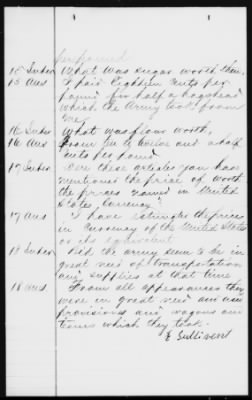 performed
15 Inter What was sugar worth then.
15 Ans I paid Eighteen cents per
pound for half a hogshead
which the Army took from
me.
16 Inter What was flour worth,
16 Ans From six to twelve and a half
cuts per pound
17 Inter Are these articles you have
mentioned the price of worth
the prices named in United
States, Currency?
17 Ans I have estimated the prices
in Currency of the United States
or its equivalent
18 Inter Did the army seem to be in
great need of transportation
and supplies at that time
18 Ans From all appearances they
were in great need and
provisions and wagons and
teams which they took.
E Sullivent